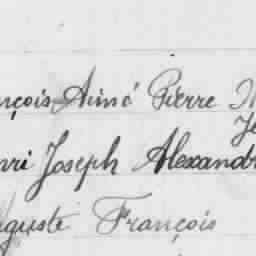 nçois Aimé Pierre
nri Joseph Alexandr
uguste François